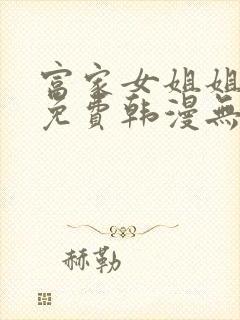 富家女姐姐
免費韩漫無
赫勒